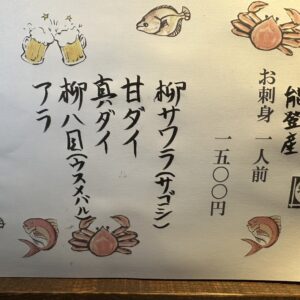 能登産
お刺身 一人前
一五〇〇円
柳サワラ(サゴシ)
甘ダイ
真ダイ
柳八目(ウスメバル)
アラ